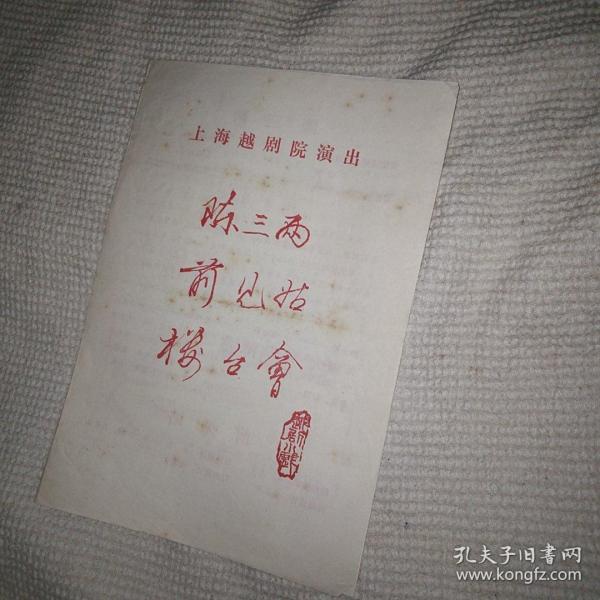 上海越剧院演出
陈三两
前见姑
楼台會
孔夫子旧书网
www.kongfz.com